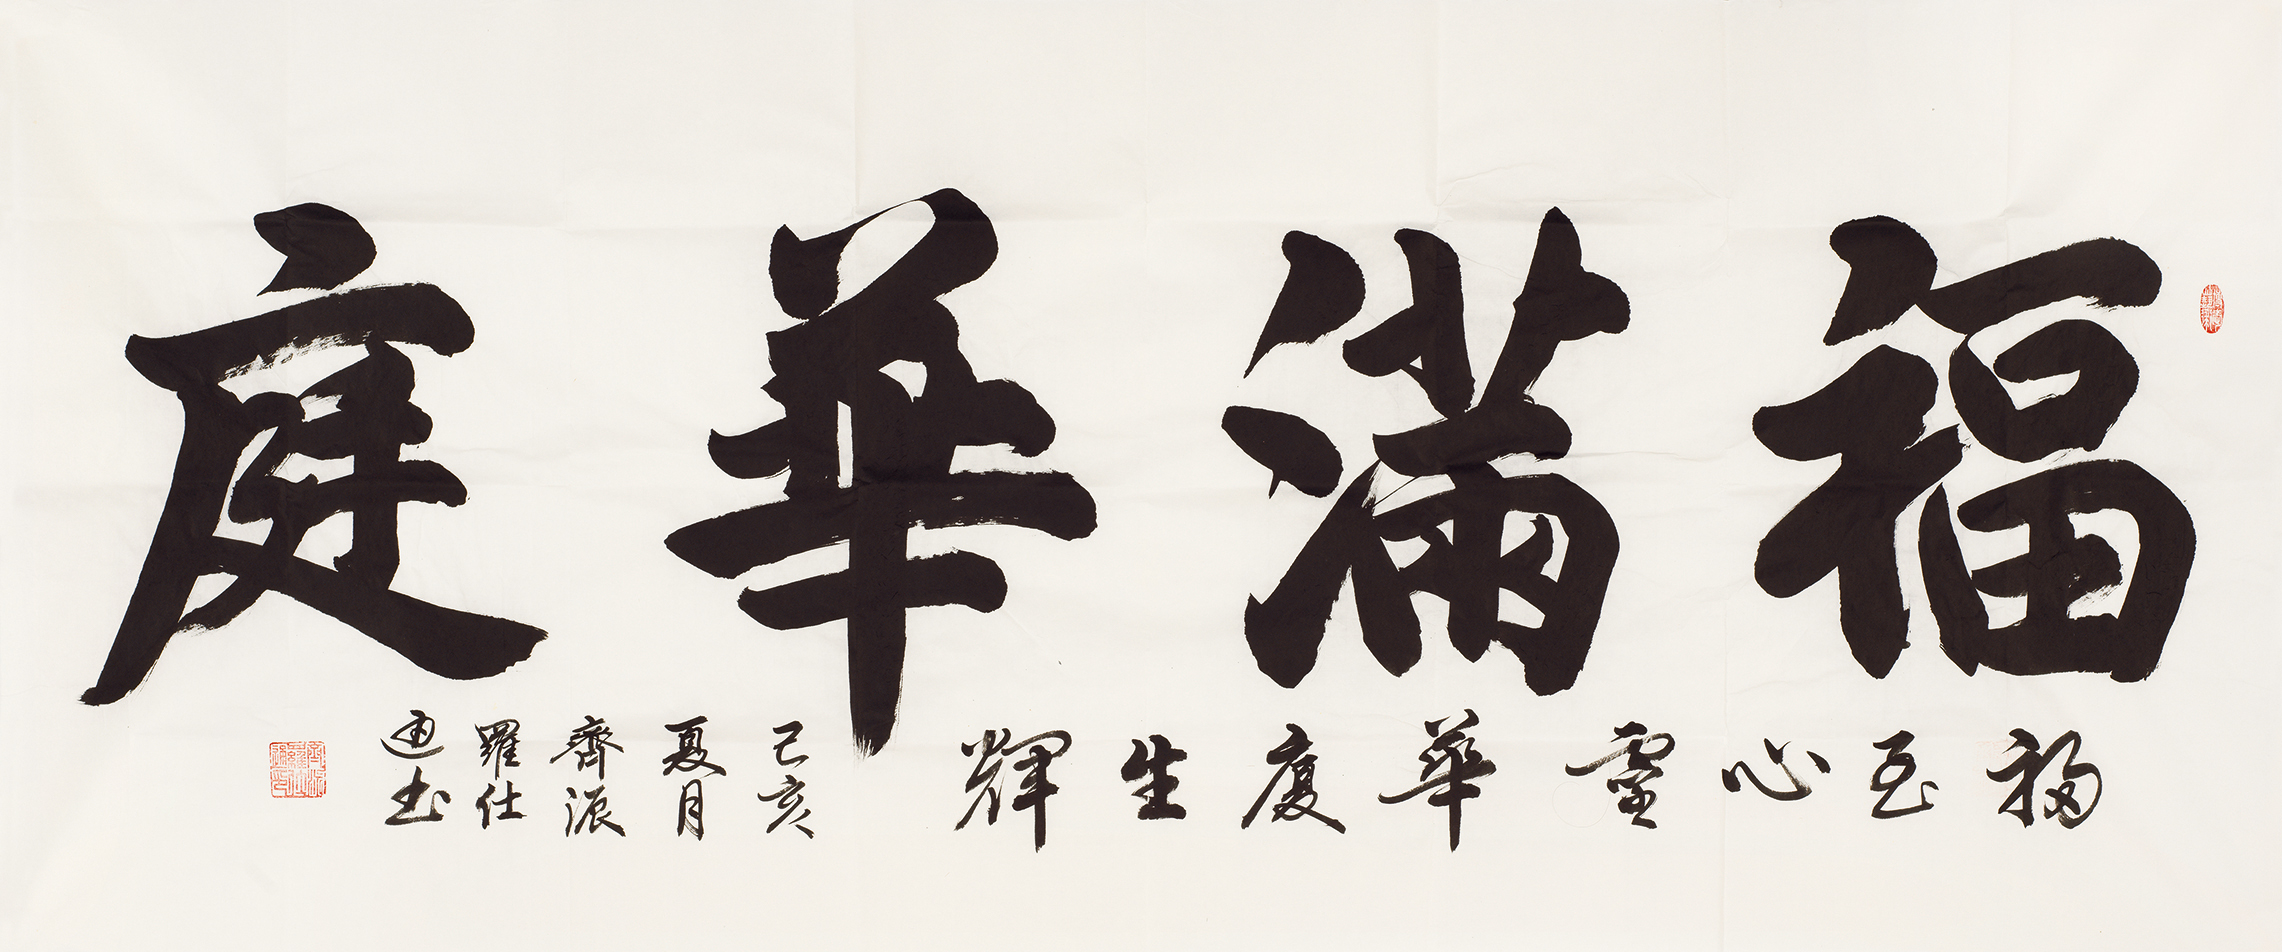 福滿華庭
福至心靈華廈生輝
己亥
夏月
齊派
羅仕
書